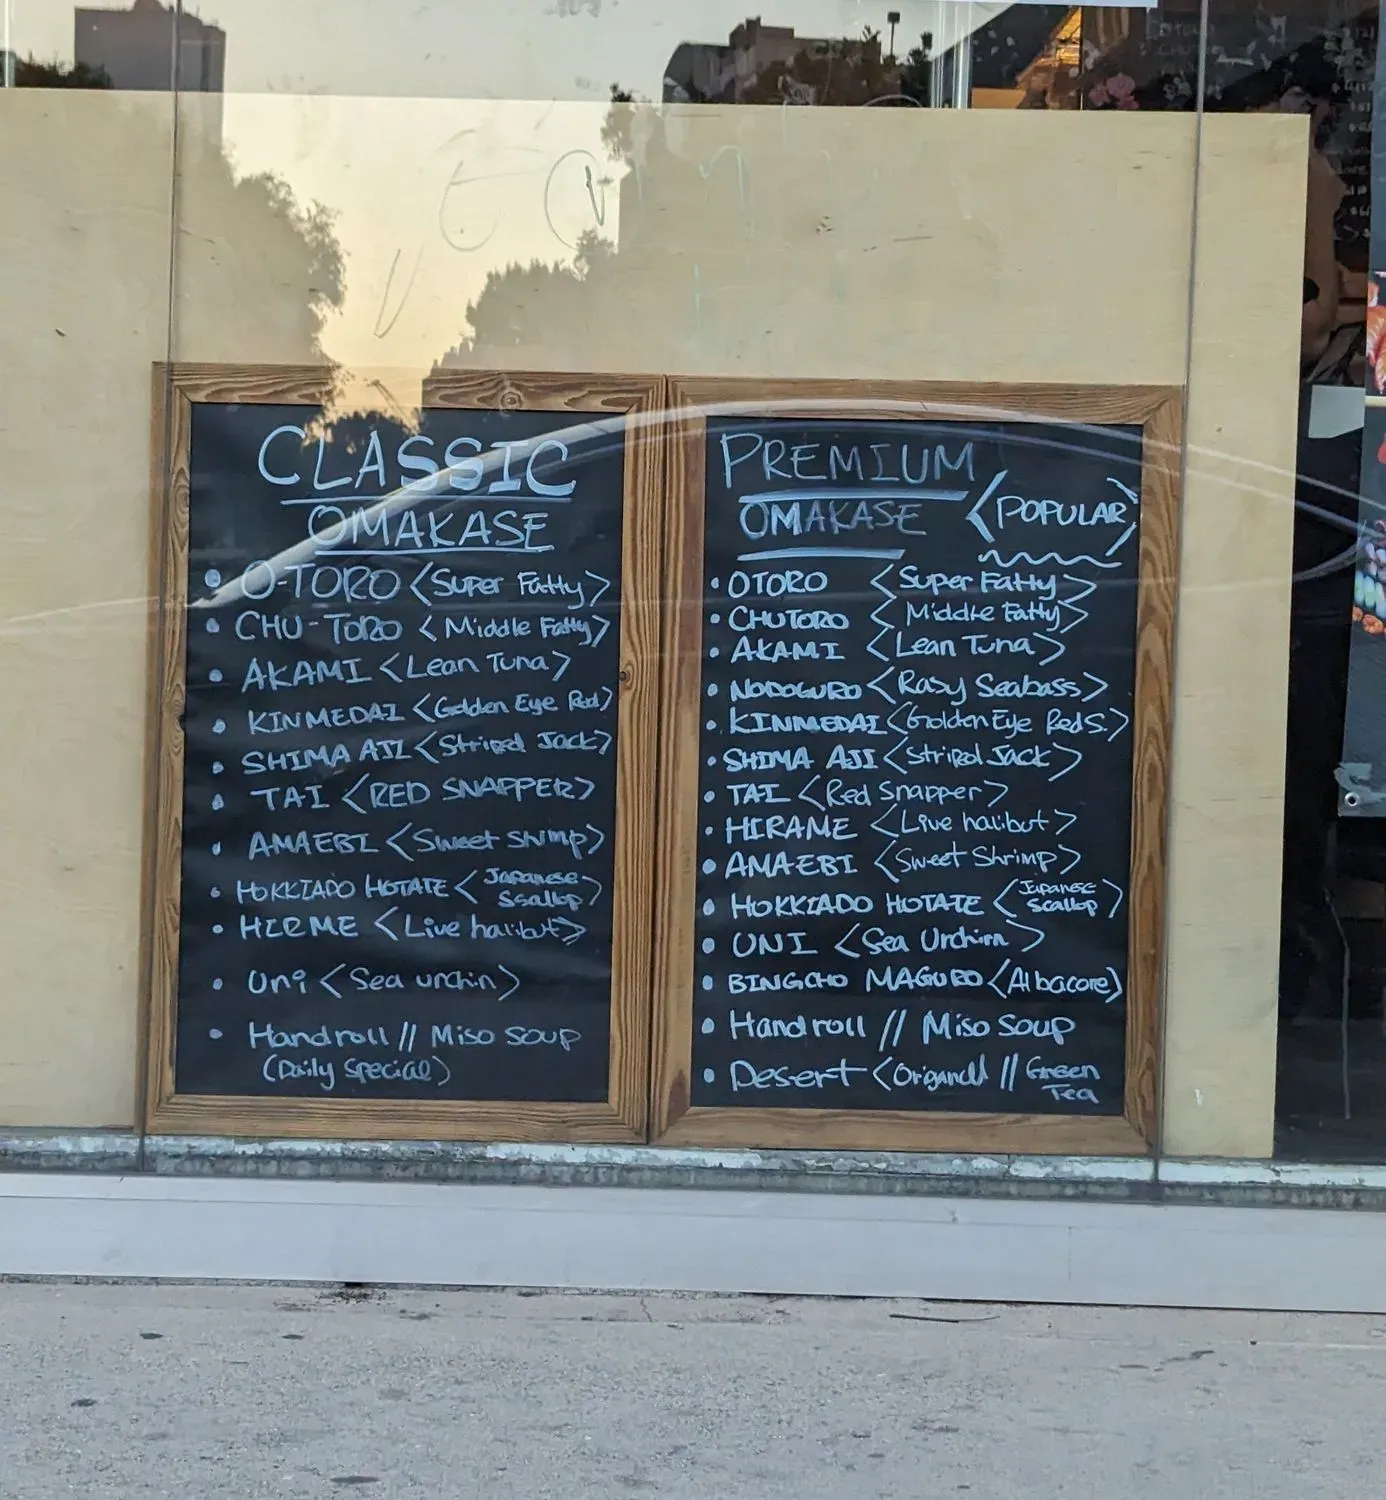 CLASSIC
OMAKASE
• O-TORO <Super Fatty>
• CHU-TORO <Middle Fatty>
• AKAMI <Lean Tuna>
• KINMEDAI <Golden Eye Red>
• SHIMA AJI <Striped Jack>
• TAI <RED SNAPPER>
• AMAEBI <Sweet Shimp>
• HOKKIADO HOTATE <Japanese
Scallop>
• HIRME <Live halibut>
• Uni <Sea urchin>
• Handroll // Miso Soup
(Daily Special)
PREMIUM
OMAKASE <POPULAR>
• OTORO <Super Fatty>
• CHUTORO <Middle Fatty>
• AKAMI <Lean Tuna>
• NODOGURO <Rasy Seabass>
• KINMEDAI <Golden Eye Red S.>
• SHIMA AJI <Striped Jack>
• TAI <Red Snapper>
• HIRAME <Live halibut>
• AMAEBI <Sweet Shrimp>
• HOKKIADO HOTATE <Japanese
Scallop>
• UNI <Sea Urchin>
• BINGCHO MAGURO <Albacore>
• Handroll // Miso Soup
• Desert < // Green
Tea